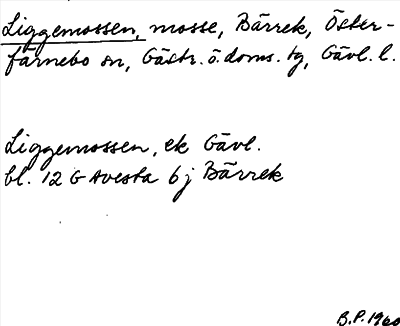 Liggemossen, mosse, Bärrek, Öster-
färnebo sn, Gästr. ö. doms. tg, Gävl. l.
Liggemossen, ek Gävl.
bl. 12 G Avesta 6 j Bärrek
B.P. 1960